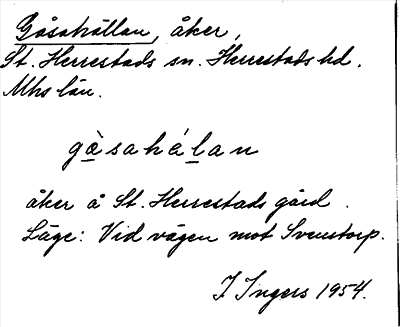 Gåsahällan, åker,
St. Herrestads sn. Herrestads hd.
Mhs län.
gàsahálan
åker å St. Herrestads gård.
Läge: Vid vägen mot Svenstorp.
I. Ingers 1954.